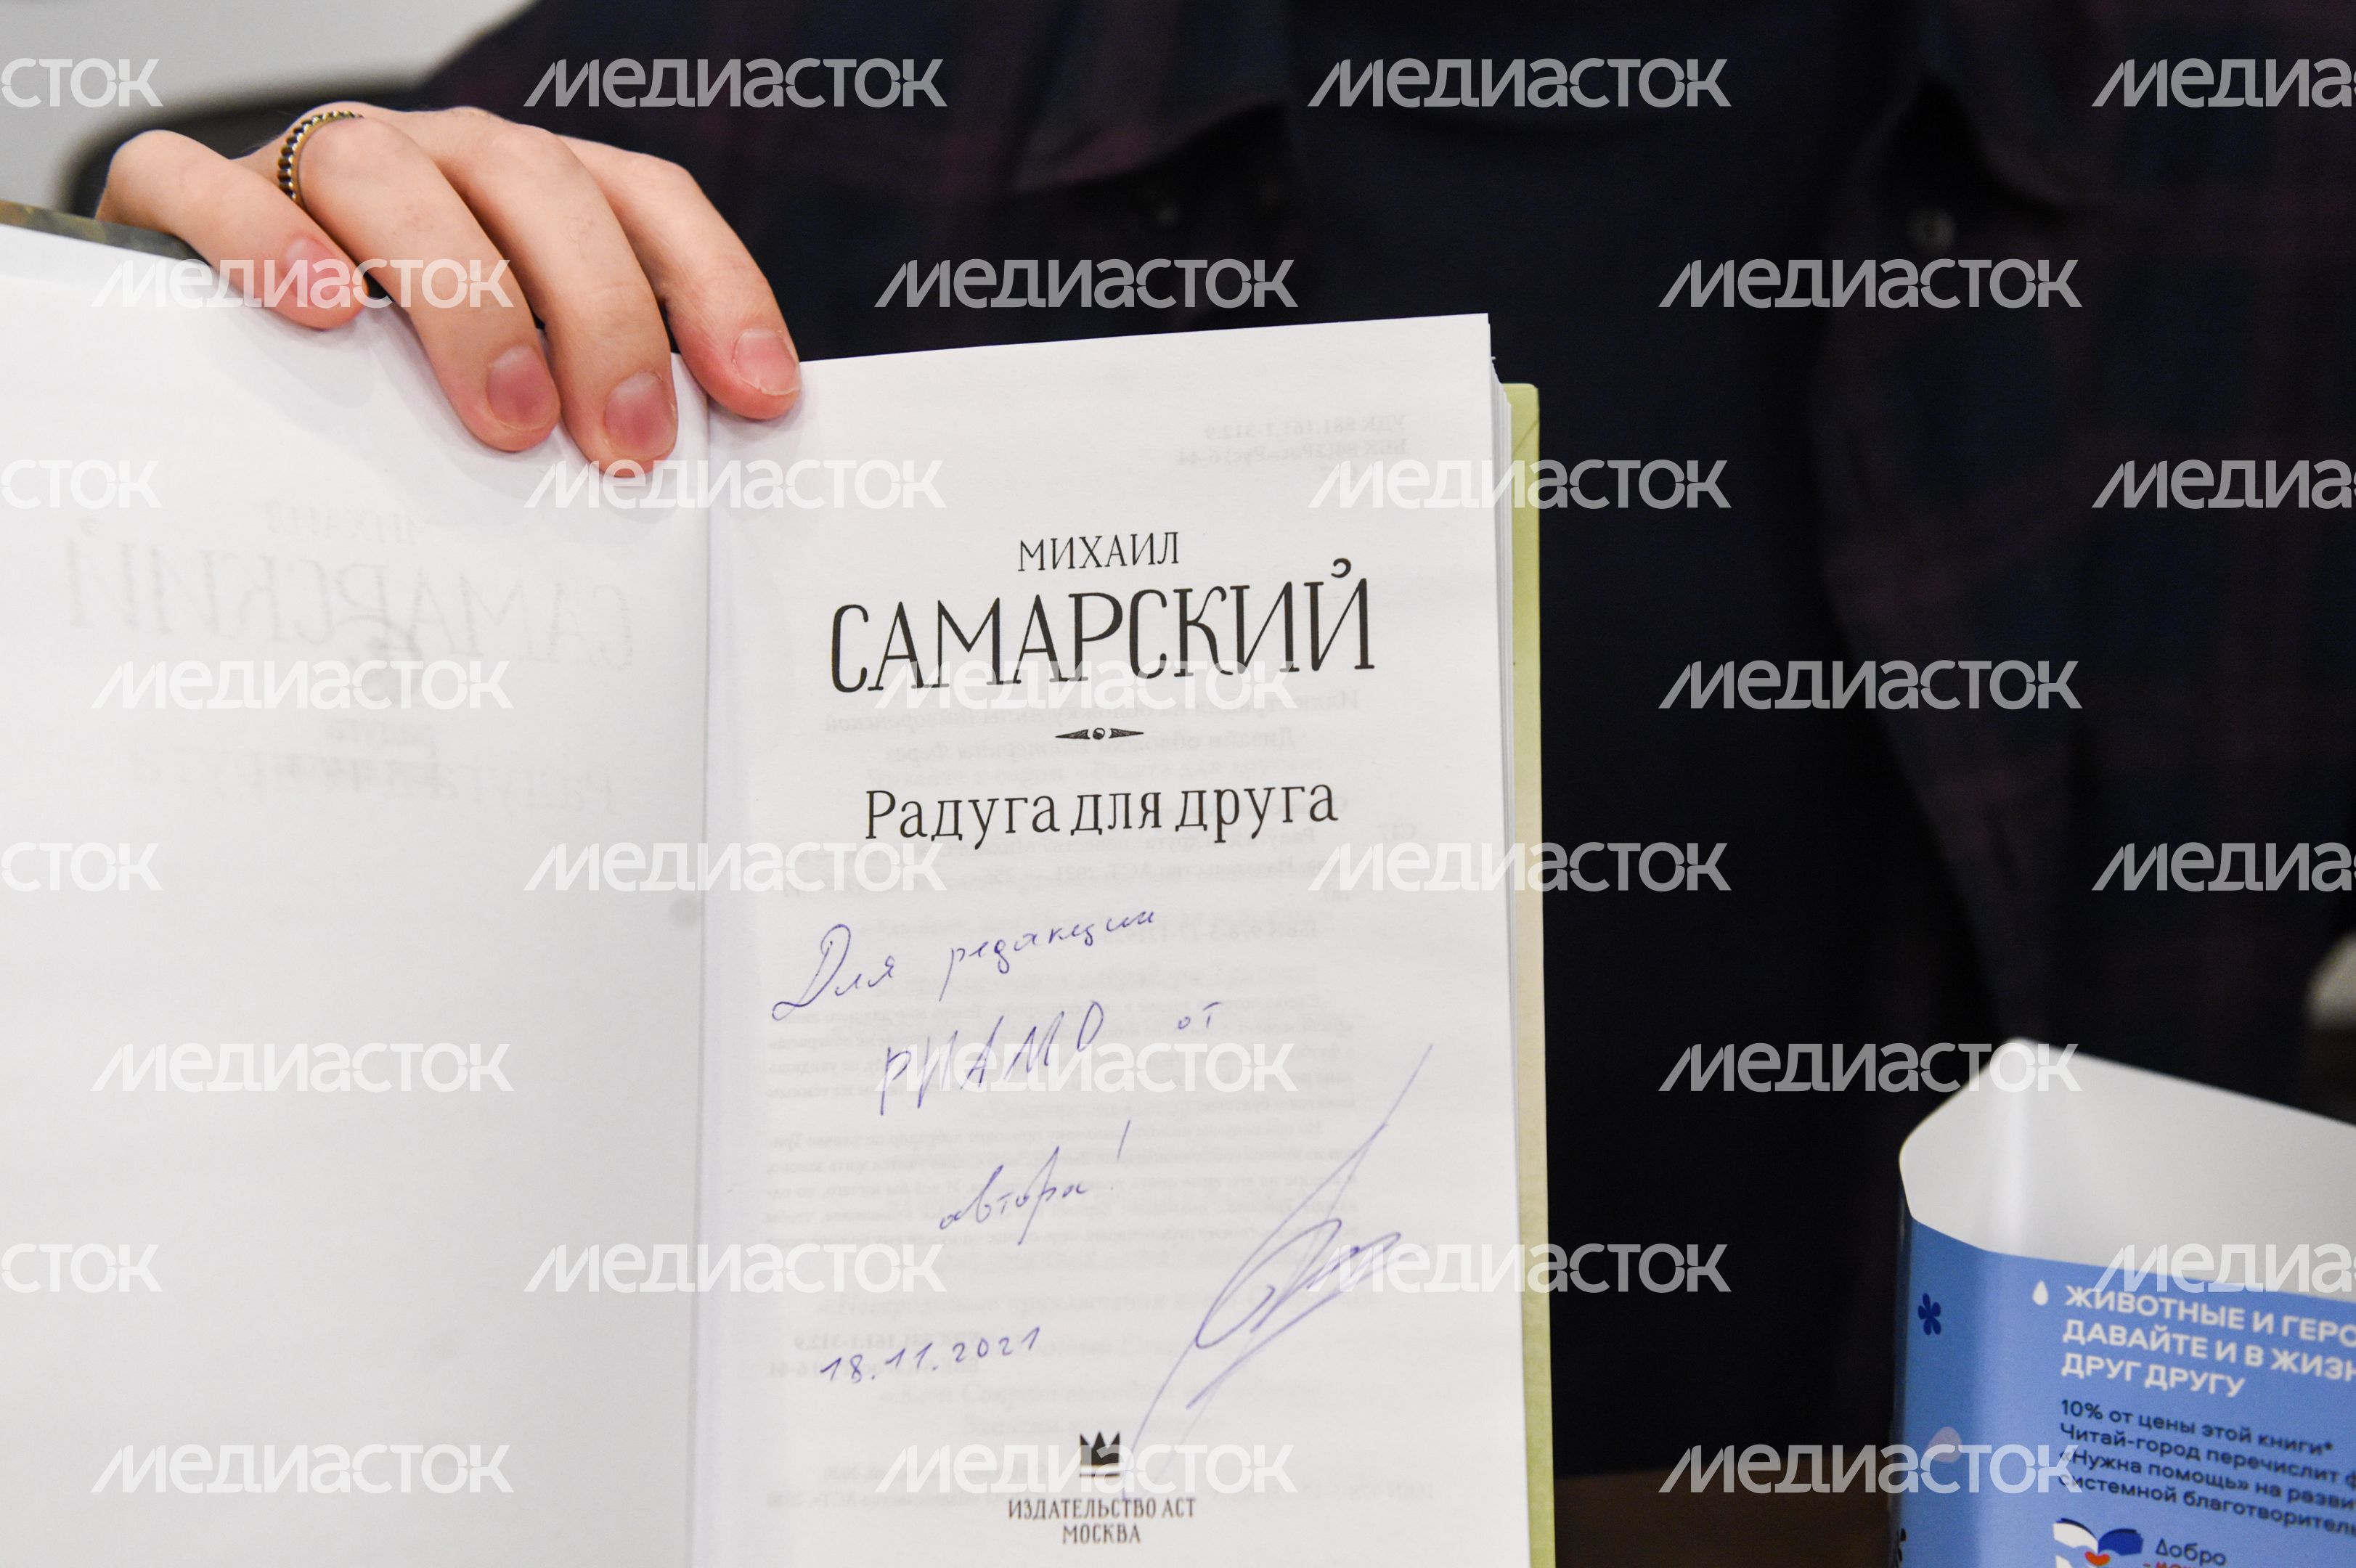 МЕДИАСТОК
МИХАИЛ
САМАРСКИЙ
Радуга для друга
Для редакции
РИАМО от
автора!
18.11.2021
ИЗДАТЕЛЬСТВО АСТ
МОСКВА
ЖИВОТНЫЕ И ГЕРО
ДАВАЙТЕ И В ЖИЗН
ДРУГ ДРУГУ
10% от цены этой книги*
Читай-город перечислит ф
«Нужна помощь» на разви
системной благотворитель
Добро